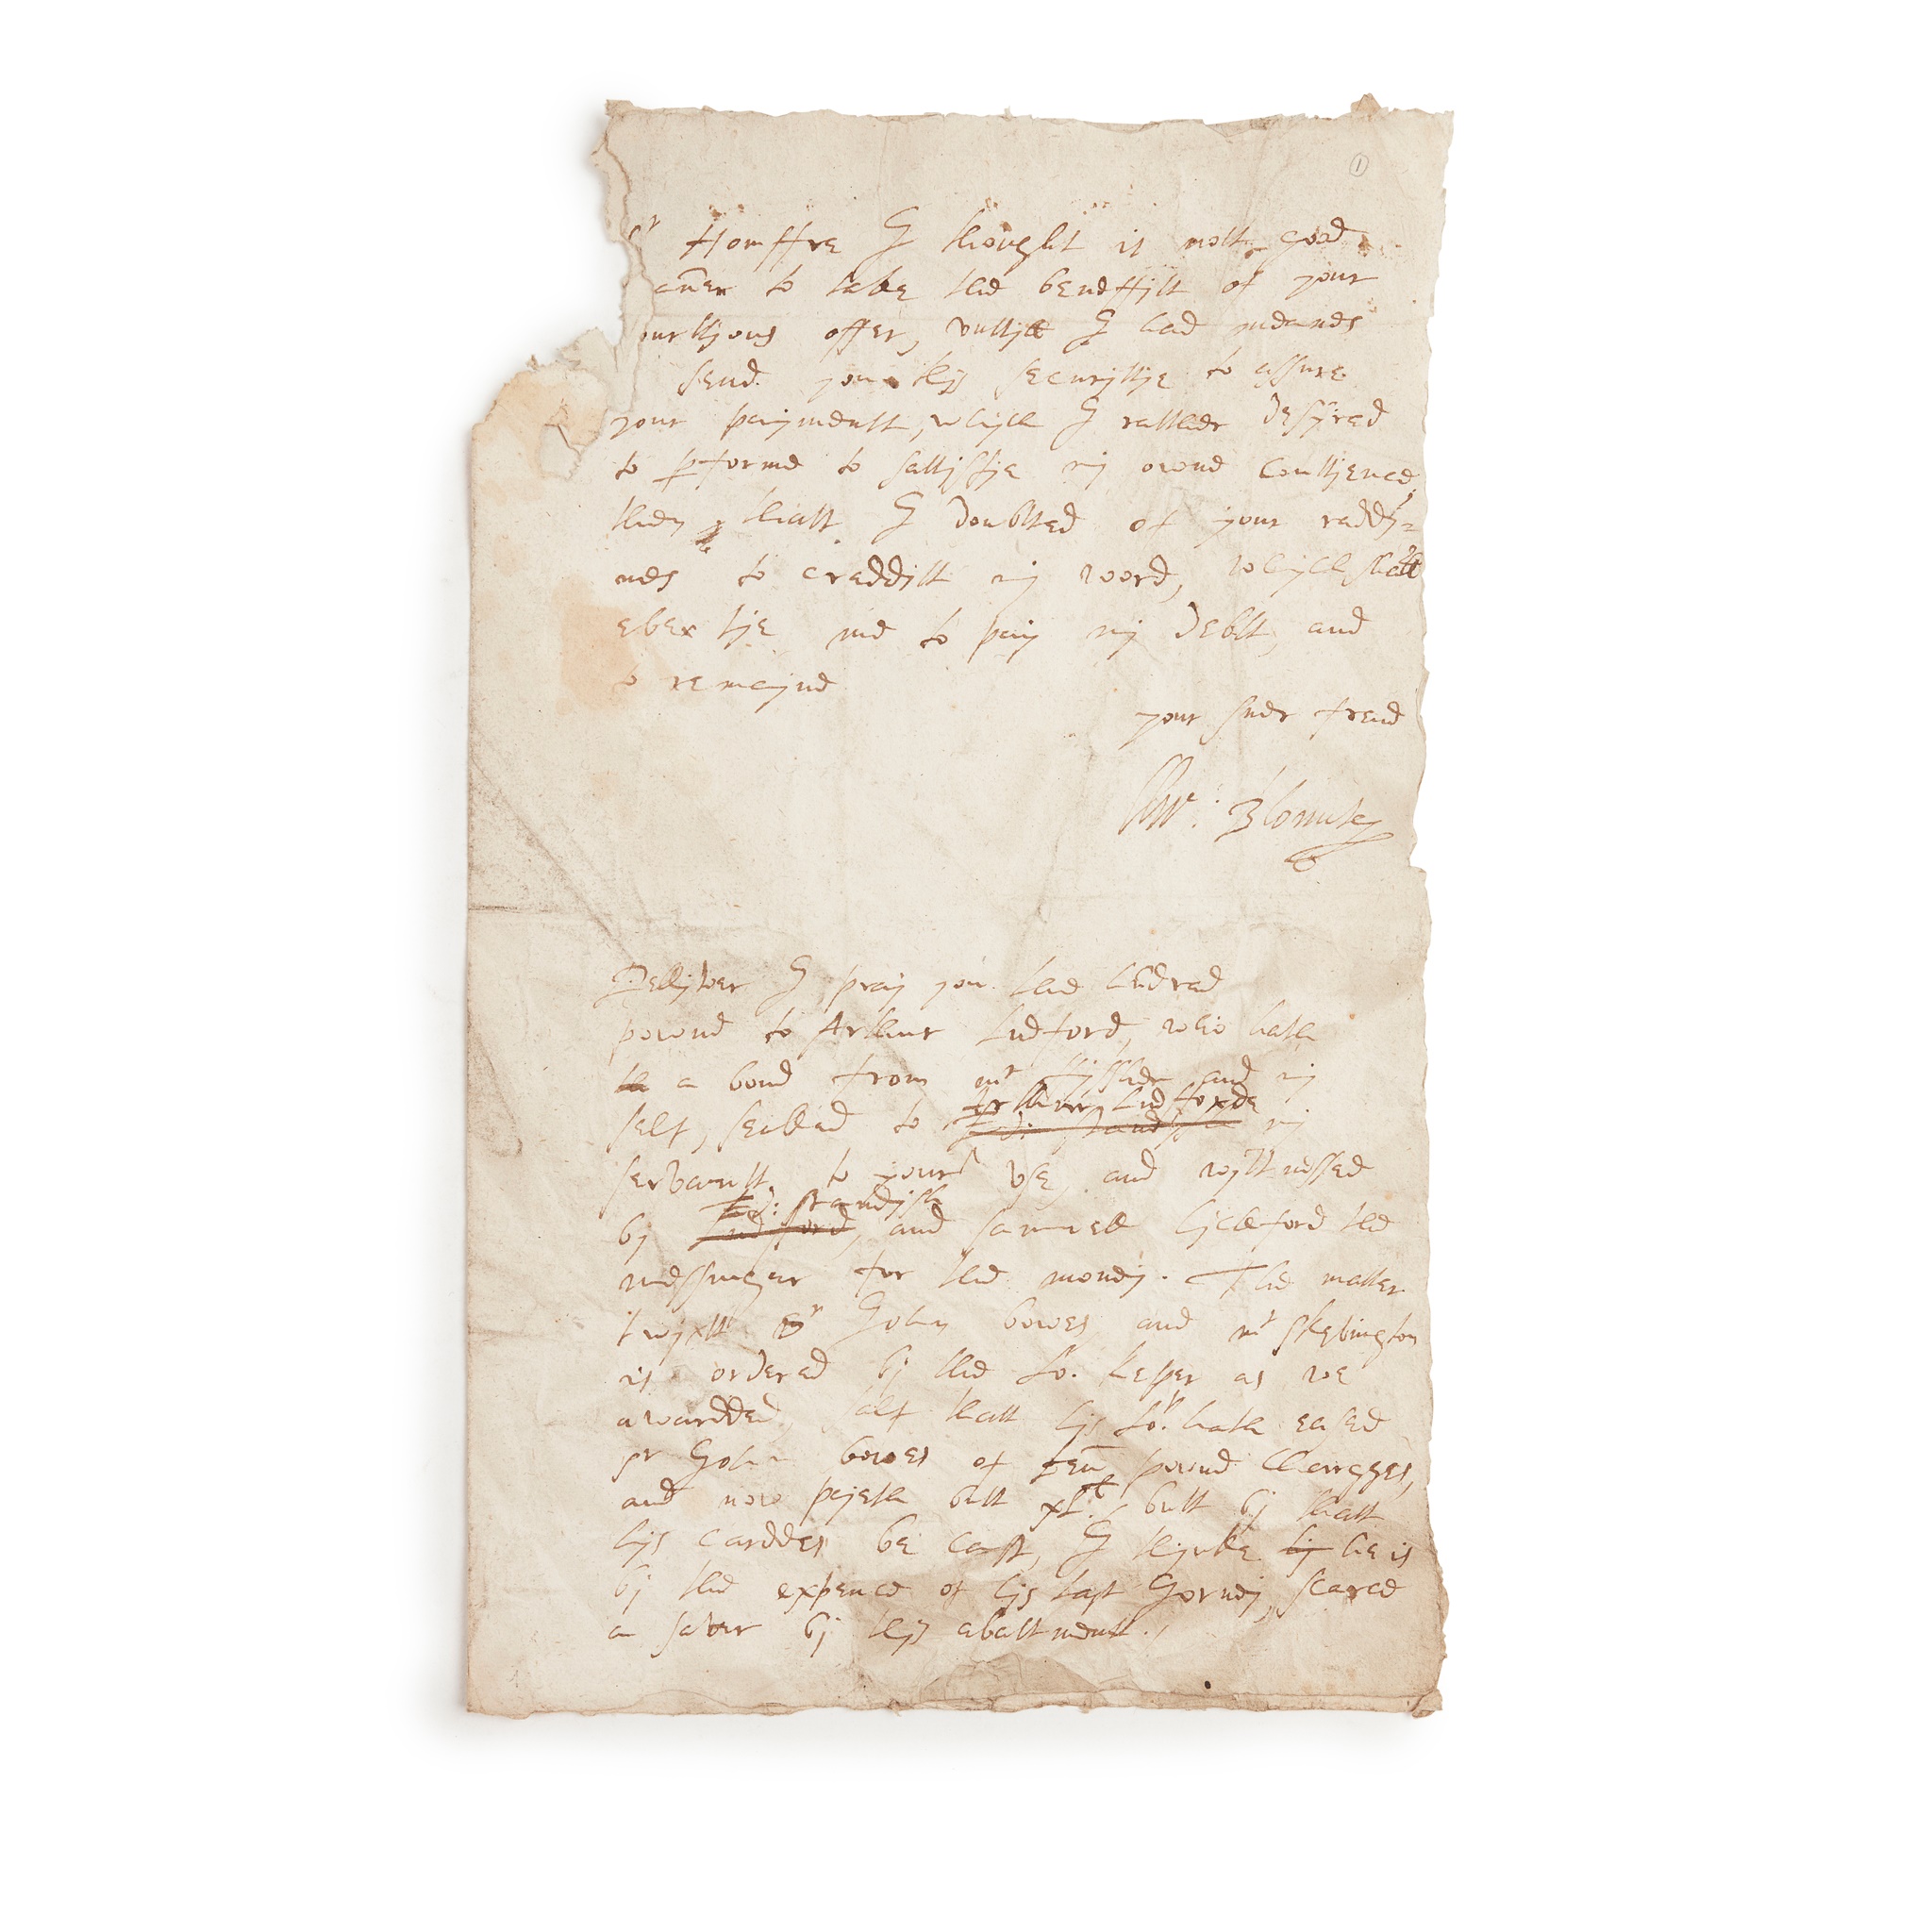 ①
Sr Homffre I thought it nott good
maner to take the beneffitt of your
curttyous offer, vnttyll I had meanes
send you thys securyttye to assure
your paymentt, whych I rather desyred
to pforme to sattisfye my owne conttyence,
then thatt I doubtted of your reddy=
nes to credditt my word, whych shall
ever tye me to pay my debtt, and
to remayne
your suer frend
Wm: Blounte
Dellyver I pray you the hūdred
pound to Arthur Ludford, who hath
a bond from mr and my
self, sealled to Arthur Ludforde
Ed: Standysh my
servantt, to your vse, and wyttnessed
Ed: Standysh
by Ludford, and Samuell hychford the
messunger for the money. The matter
twyxtt Sr John bowes and mr Skevington
is ordered by the Lo: keper as we
awardded, salf thatt hys Lop: hath eased
Sr John bowes of ten pound chargges,
and now payeth butt xll, butt by thatt
hys carddes be cast, I thynke hy he is
by the expence of hys last Jorney, scarce
a saver by thys abattmentt.